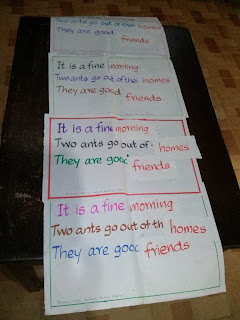 Two ants go out of their homes
They are good friends
It is a fine morning
Two ants go out of thei homes
They are good friends
It is a fine morning
Two ants go out of homes
They are good friends
It is a fine morning
Two ants go out of th homes
They are good friends